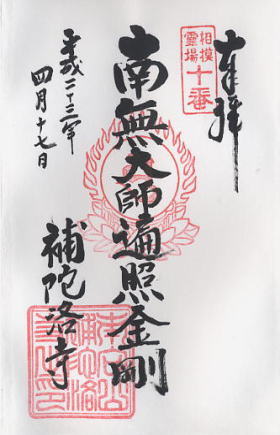 奉拝
相模
霊場
十番
南無大師遍照金剛
平成二十三年
四月十七日
補陀洛寺